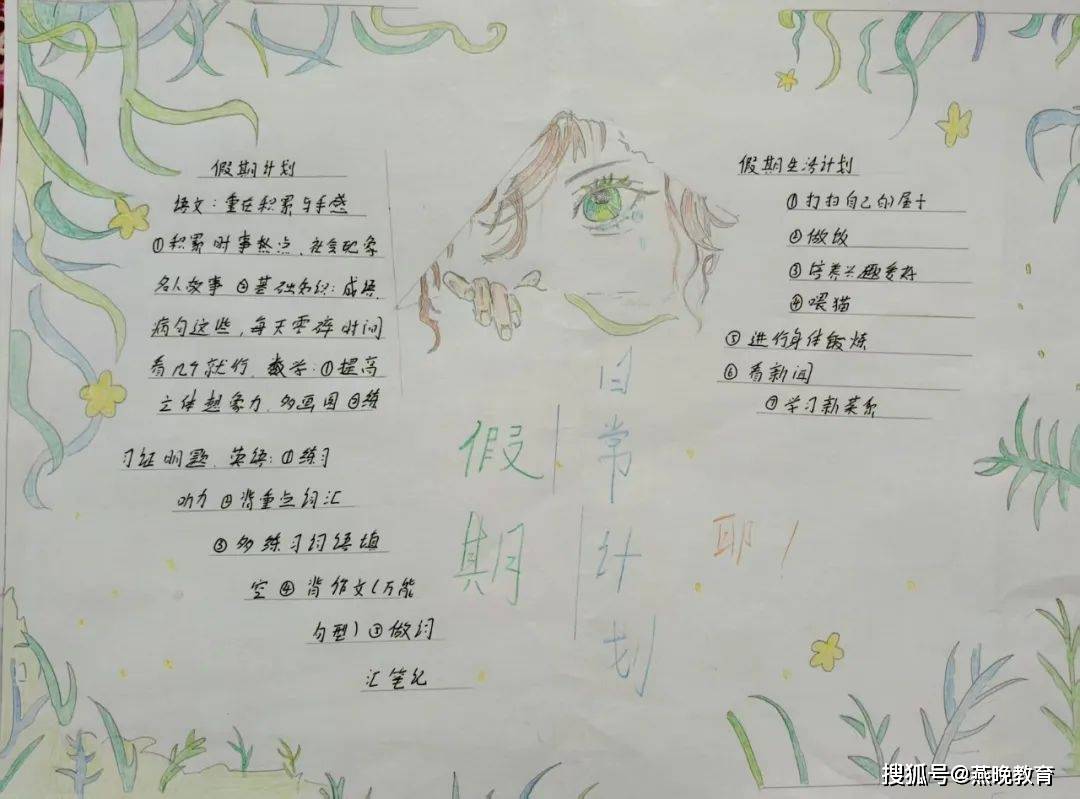 假期计划
语文：重在积累与手感
①积累时事热点、社会现象
名人故事②基础知识：成语、
病句这些，每天零碎时间
看几个就行、数学：①提高
立体想象力、多画图②练
习证明题、英语：①练习
听力②背重点词汇
③多练习词语填
空④背作文（万能
句型）⑤做词
汇笔纪
假期
日常计划
耶！
假期生活计划
①打扫自己的屋子
②做饭
③培养兴趣爱好
④喂猫
⑤进行身体锻炼
⑥看新闻
⑦学习新菜系
搜狐号@燕晚教育